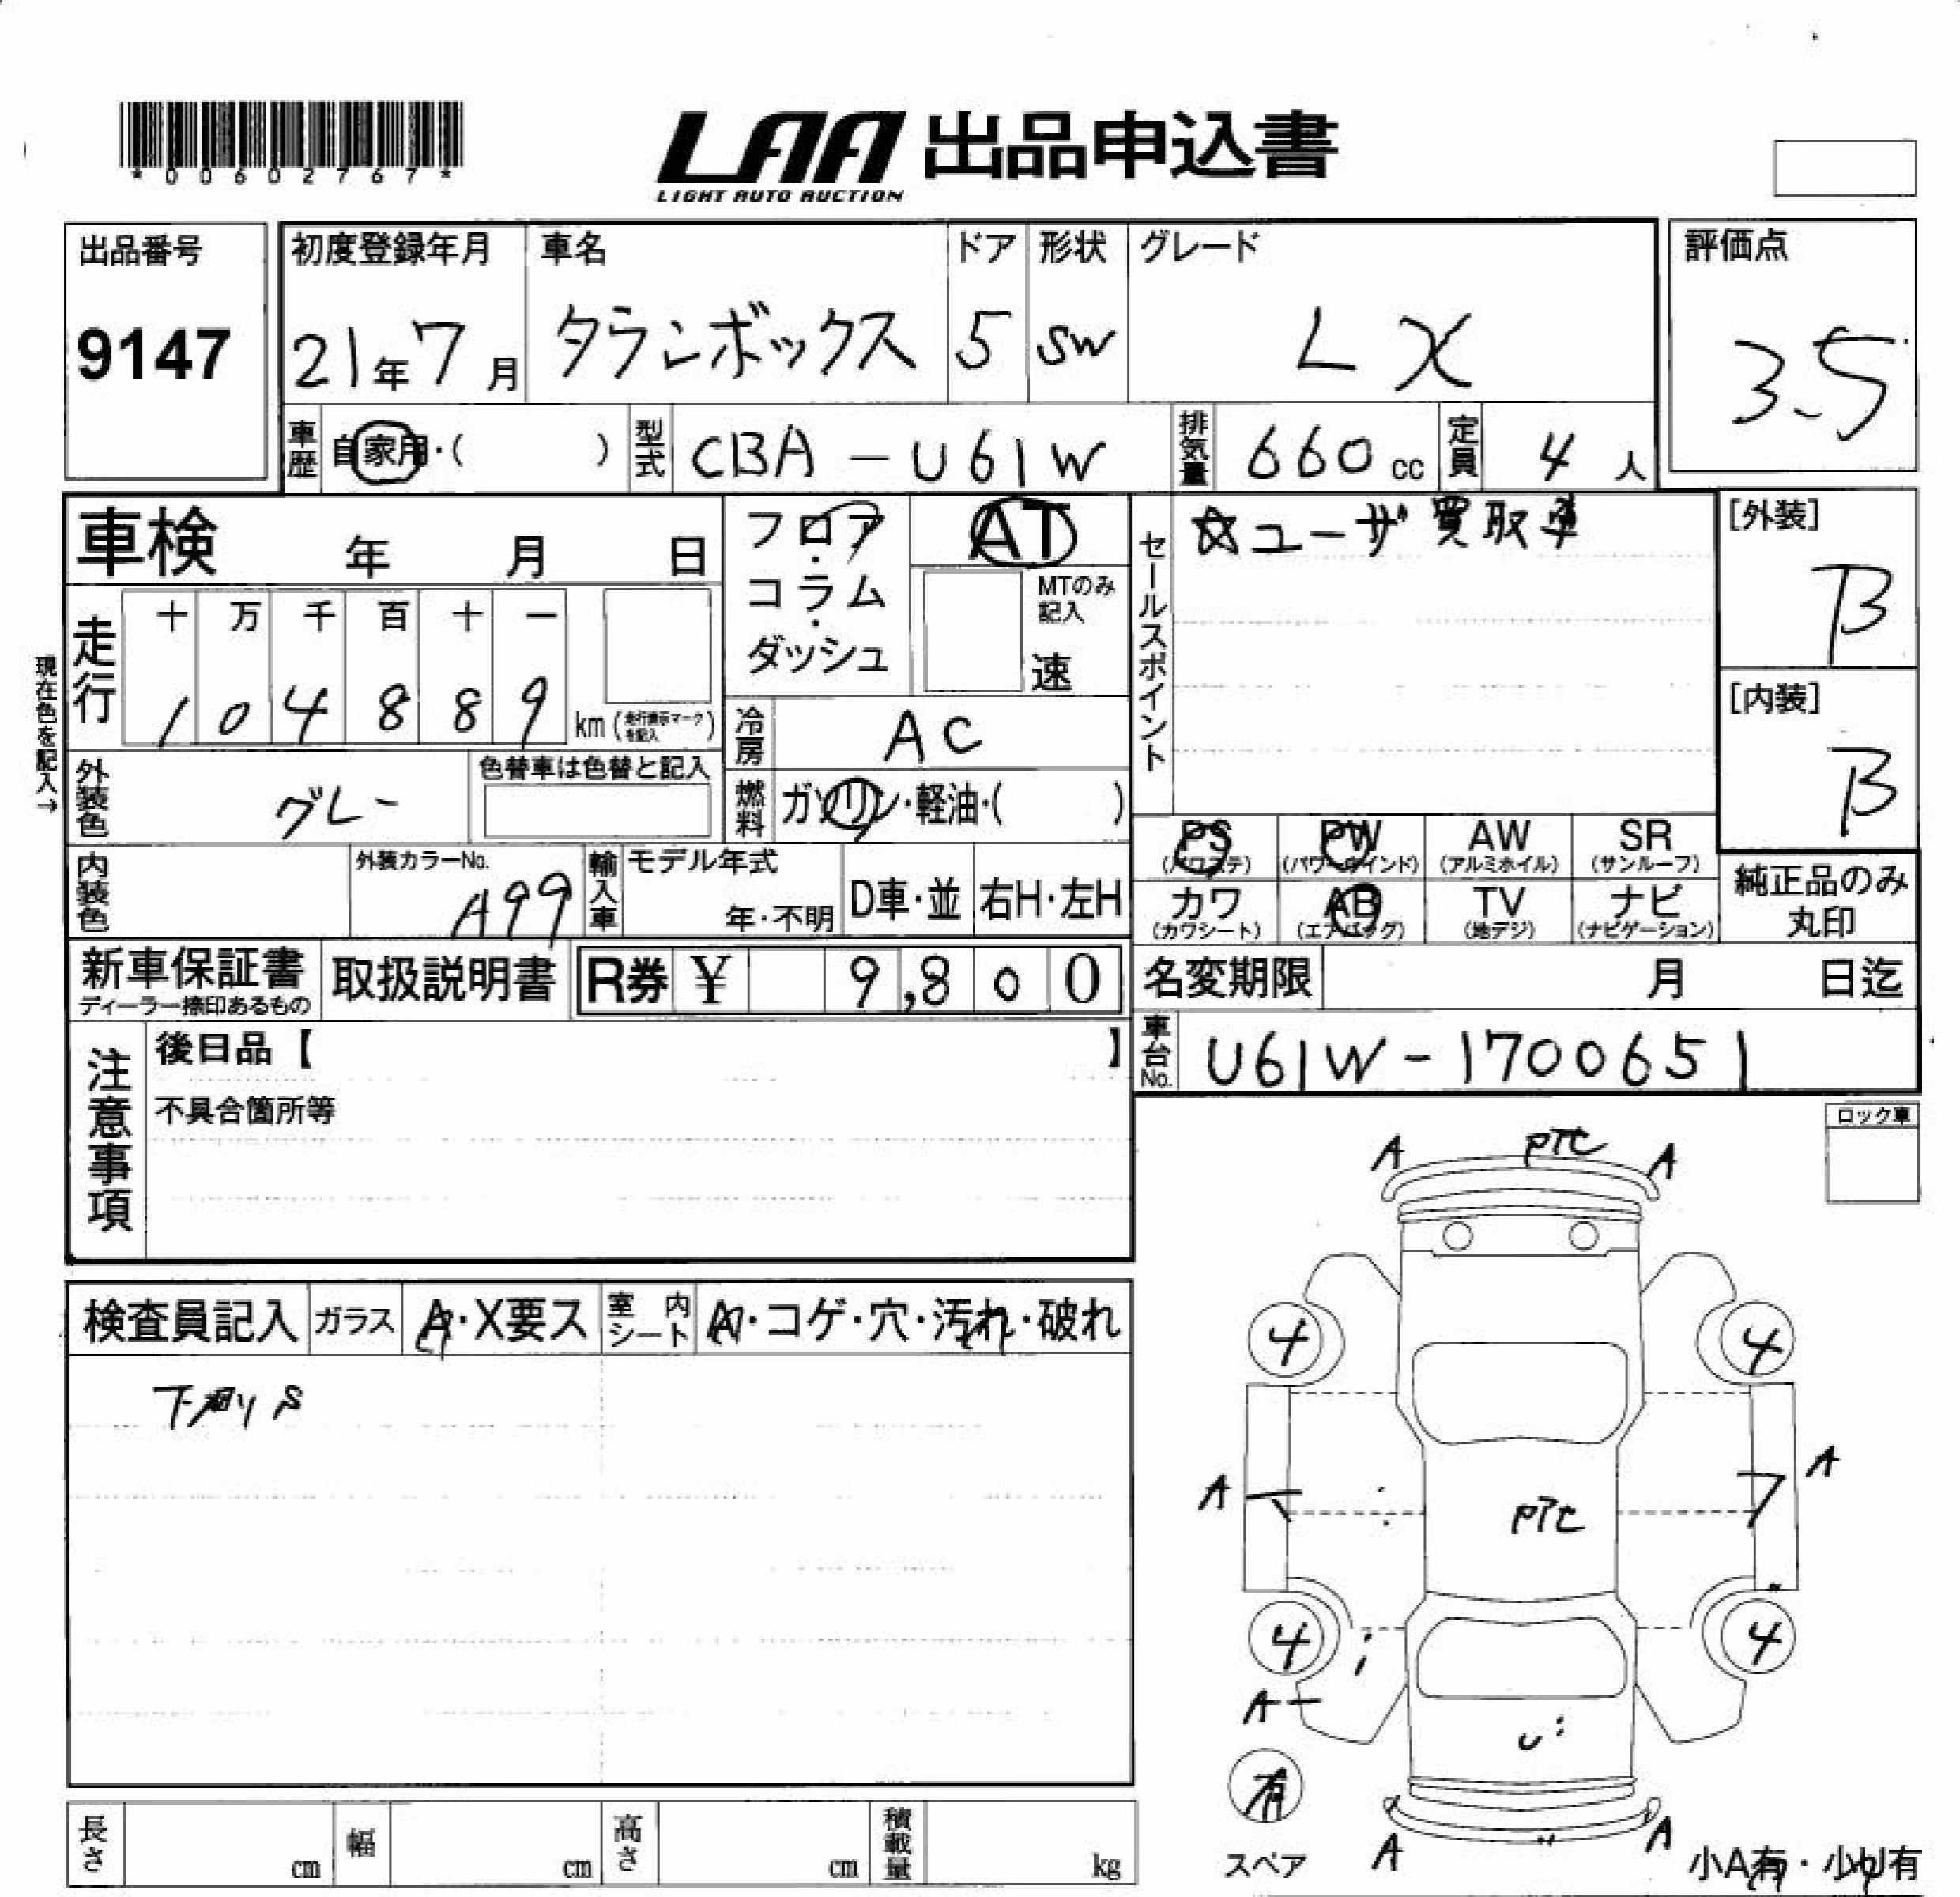 *00602767*
LAA 出品申込書
LIGHT AUTO AUCTION
出品番号
9147
初度登録年月
21年7月
車名
タウンボックス
ドア
5
形状
SW
グレード
LX
評価点
3.5
車歴
自家用・( )
型式
CBA-U61W
排気量
660cc
定員
4人
車検 年 月 日
フロア・コラム・ダッシュ
AT
MTのみ記入
速
セールスポイント
☆ユーザ買取車
[外装]
B
[内装]
B
現在色を記入→
走行
十 万 千 百 十 一
1 0 4 8 8 9 km (走行表示マークを記入)
冷房
AC
燃料
ガソリン・軽油・( )
外装色
グレー
色替車は色替と記入
内装色
外装カラーNo.
A99
輸入車
モデル年式
年・不明
D車・並
右H・左H
PS (パワステ)
PW (パワーウインド)
AW (アルミホイル)
SR (サンルーフ)
カワ (カワシート)
AB (エアバッグ)
TV (地デジ)
ナビ (ナビゲーション)
純正品のみ丸印
新車保証書
ディーラー捺印あるもの
取扱説明書
R券 ¥ 9,800
名変期限 月 日迄
車台No.
U61W-1700651
注意事項
後日品【 】
不具合箇所等
ロック車
検査員記入
ガラス
A・X要ス
室内シート
・コゲ・穴・汚れ・破れ
下廻りS
A PTC A
4 4
A A
PTC
4 4
A
U
有
スペア
A A
小A有・小U有
長さ cm
幅 cm
高さ cm
積載量 kg